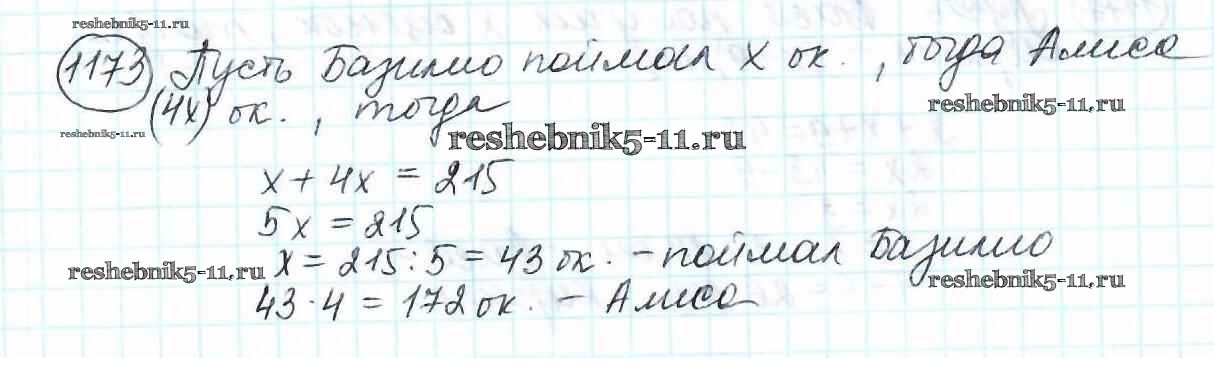 reshebnik5-11.ru
1173 Пусть Базилио поймал x ок., тогда Алиса
reshebnik5-11.ru
(4x) ок., тогда
reshebnik5-11.ru
reshebnik5-11.ru
x + 4x = 215
5x = 215
x = 215 : 5 = 43 ок. – поймал Базилио
reshebnik5-11.ru
reshebnik5-11.ru
43 · 4 = 172 ок. – Алиса